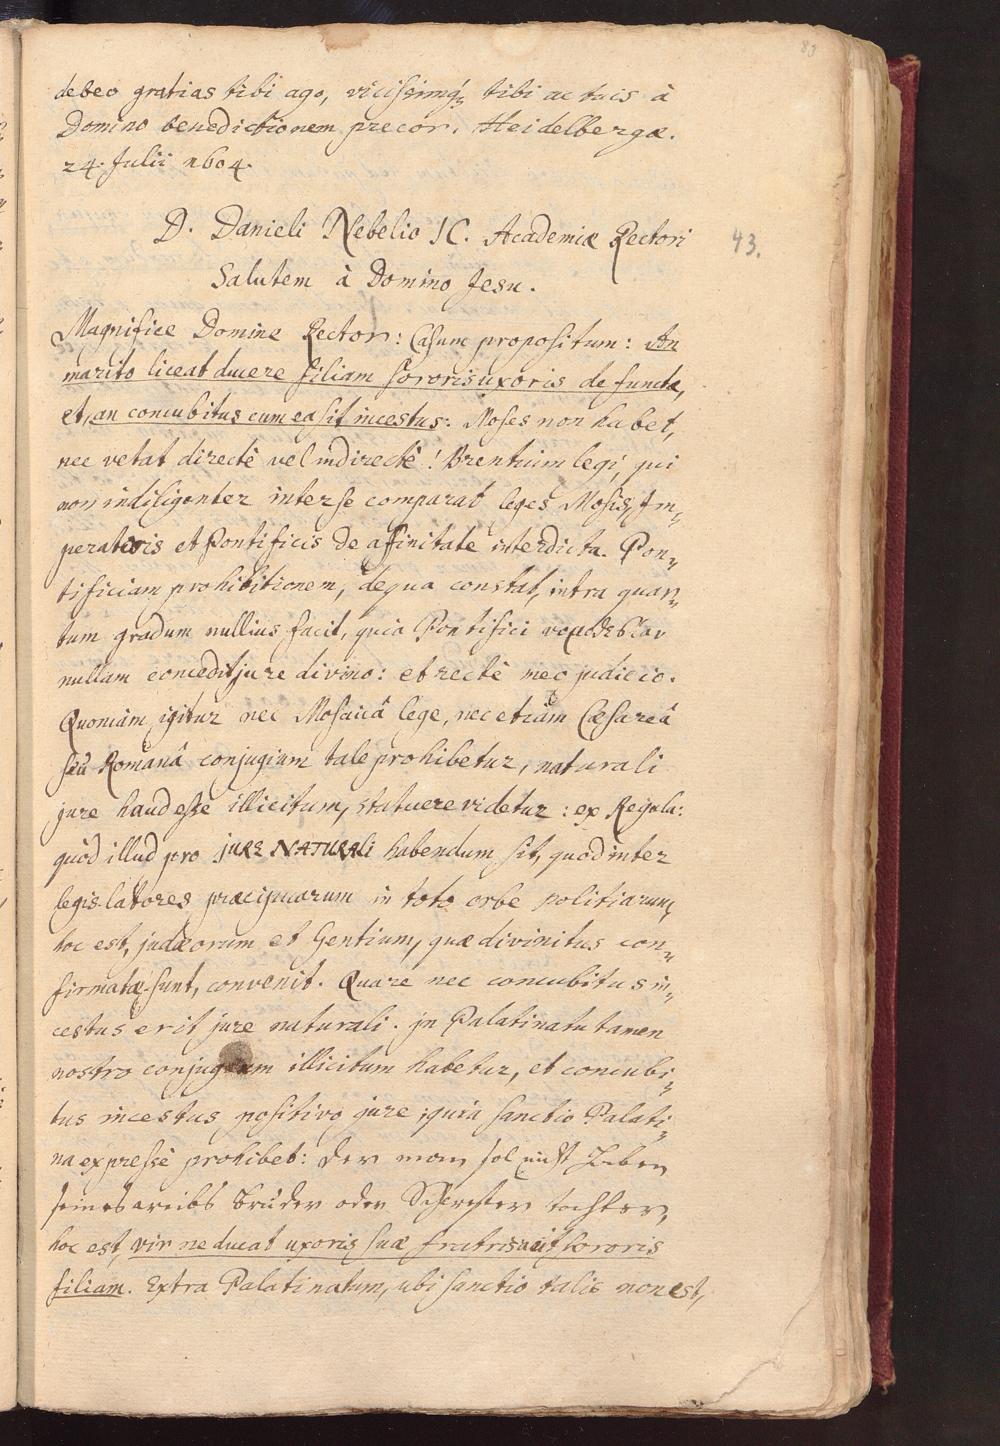 83
debeo gratias tibi ago, vicissimq; tibi ac tuis à
Domino benedictionem precor. Heidelbergæ.
24. Julii 1604.
D. Danieli Nebelio JC. Academiæ Rectori
43.
Salutem à Domino Jesu.
Magnifice Domine Rector: Casum propositum: An
marito liceat ducere filiam sororis uxoris defunctæ,
et, an concubitus cum ea sit incestus: Moses non habet,
nec vetat directè vel indirectè! Brentium legi, qui
non indiligenter inter se comparat leges Mosis, Im-
peratoris et Pontificis de affinitate interdicta. Pon-
tificiam prohibitionem, de qua constat, intra quar-
tum gradum nullius facit, quia Pontifici
nullam concedit jure divino: et rectè meo judicio.
Quoniam igitur nec Mosaicâ lege, nec etiam Cæsareâ
seu Romanâ conjugium tale prohibetur, naturali
jure haud esse illicitum, statuere videtur: ex Regula:
quòd illud pro jURE NATURALi habendum sit, quod inter
legis-latores præcipuarum in toto orbe politiarum,
hoc est, judæorum et Gentium, quæ divinitus con-
firmatæ sunt, convenit. Quare nec concubitus in-
cestus erit jure naturali. jn Palatinatu tamen
nostro conjugium illicitum habetur, et concubi-
tus incestus positivo jure: quia sanctio Palati-
na expressè prohibet: Der man sol nicht haben
seines weibs bruder oder Schwester tochter,
hoc est, vir ne ducat uxoris suæ fratris aut sororis
filiam. Extra Palatinatum, ubi sanctio talis non est,